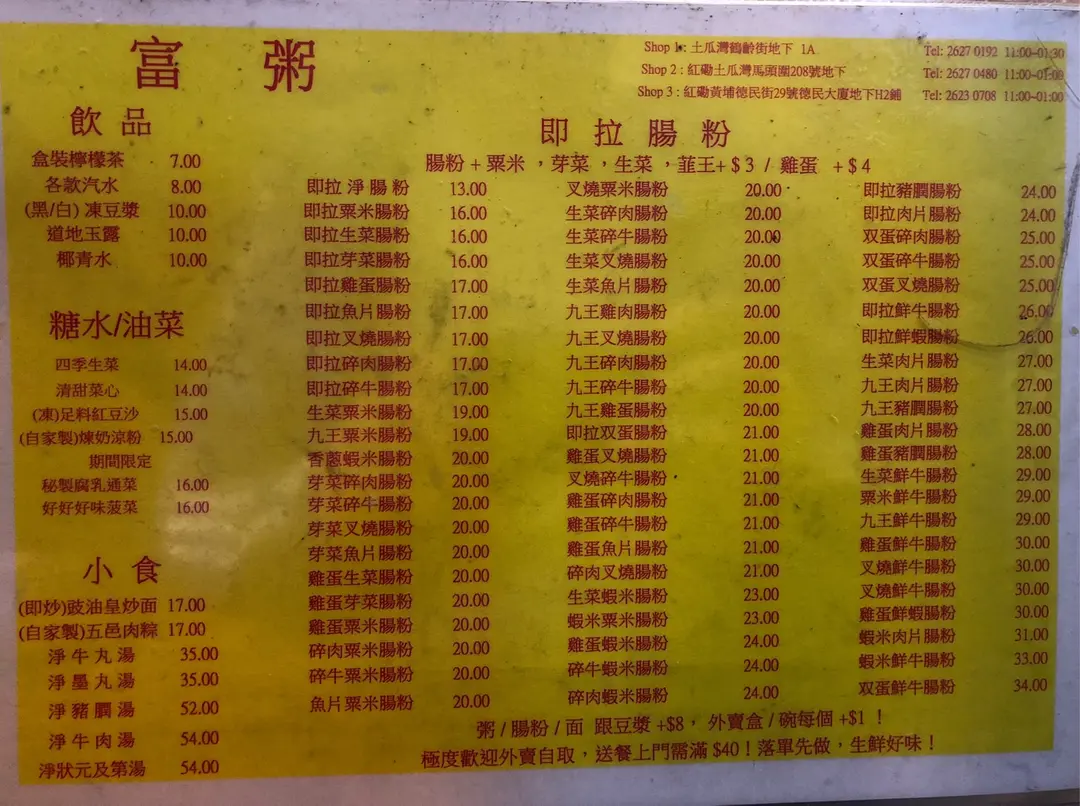 富 粥
Shop 1 : 土瓜灣鶴齡街地下 1A Tel: 2627 0192 11:00~01:30
Shop 2 : 紅磡土瓜灣馬頭圍208號地下 Tel: 2627 0480 11:00~01:00
Shop 3 : 紅磡黃埔德民街29號德民大廈地下H2鋪 Tel: 2623 0708 11:00~01:00
飲 品
盒裝檸檬茶 7.00
各款汽水 8.00
(黑/白) 凍豆漿 10.00
道地玉露 10.00
椰青水 10.00
糖水/油菜
四季生菜 14.00
清甜菜心 14.00
(凍)足料紅豆沙 15.00
(自家製)煉奶涼粉 15.00
期間限定
秘製腐乳通菜 16.00
好好好味菠菜 16.00
小 食
(即炒)豉油皇炒面 17.00
(自家製)五邑肉粽 17.00
淨 牛 丸 湯 35.00
淨 墨 丸 湯 35.00
淨 豬 膶 湯 52.00
淨 牛 肉 湯 54.00
淨狀元及第湯 54.00
即 拉 腸 粉
腸粉 + 粟米 ，芽菜 ，生菜 ，韮王+ $ 3 / 雞蛋 + $ 4
即拉 淨 腸 粉 13.00
即拉粟米腸粉 16.00
即拉生菜腸粉 16.00
即拉芽菜腸粉 16.00
即拉雞蛋腸粉 17.00
即拉魚片腸粉 17.00
即拉叉燒腸粉 17.00
即拉碎肉腸粉 17.00
即拉碎牛腸粉 17.00
生菜粟米腸粉 19.00
九王粟米腸粉 19.00
香蔥蝦米腸粉 20.00
芽菜碎肉腸粉 20.00
芽菜碎牛腸粉 20.00
芽菜叉燒腸粉 20.00
芽菜魚片腸粉 20.00
雞蛋生菜腸粉 20.00
雞蛋芽菜腸粉 20.00
雞蛋粟米腸粉 20.00
碎肉粟米腸粉 20.00
碎牛粟米腸粉 20.00
魚片粟米腸粉 20.00
叉燒粟米腸粉 20.00
生菜碎肉腸粉 20.00
生菜碎牛腸粉 20.00
生菜叉燒腸粉 20.00
生菜魚片腸粉 20.00
九王雞肉腸粉 20.00
九王叉燒腸粉 20.00
九王碎肉腸粉 20.00
九王碎牛腸粉 20.00
九王雞蛋腸粉 20.00
即拉双蛋腸粉 21.00
雞蛋叉燒腸粉 21.00
叉燒碎牛腸粉 21.00
雞蛋碎肉腸粉 21.00
雞蛋碎牛腸粉 21.00
雞蛋魚片腸粉 21.00
碎肉叉燒腸粉 21.00
生菜蝦米腸粉 23.00
蝦米粟米腸粉 23.00
雞蛋蝦米腸粉 24.00
碎牛蝦米腸粉 24.00
碎肉蝦米腸粉 24.00
即拉豬膶腸粉 24.00
即拉肉片腸粉 24.00
双蛋碎肉腸粉 25.00
双蛋碎牛腸粉 25.00
双蛋叉燒腸粉 25.00
即拉鮮牛腸粉 26.00
即拉鮮蝦腸粉 26.00
生菜肉片腸粉 27.00
九王肉片腸粉 27.00
九王豬膶腸粉 27.00
雞蛋肉片腸粉 28.00
雞蛋豬膶腸粉 28.00
生菜鮮牛腸粉 29.00
粟米鮮牛腸粉 29.00
九王鮮牛腸粉 29.00
雞蛋鮮牛腸粉 30.00
叉燒鮮牛腸粉 30.00
叉燒鮮牛腸粉 30.00
雞蛋鮮蝦腸粉 30.00
蝦米肉片腸粉 31.00
蝦米鮮牛腸粉 33.00
双蛋鮮牛腸粉 34.00
粥 / 腸粉 / 面 跟豆漿 +$8， 外賣盒 / 碗每個 +$1 ！
極度歡迎外賣自取，送餐上門需滿 $40！落單先做，生鮮好味！